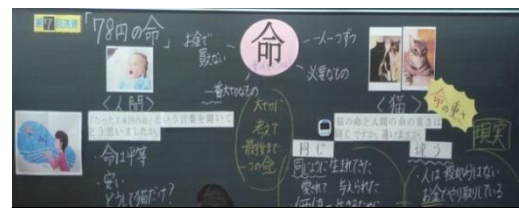 第7回道徳
「78円の命」
お金で
買えない
命
一人一つずつ
必要なもの
一番大切なもの
<人間>
「たった78円の命」という言葉を聞いて
どう思いましたか。
・命は平等
・安い
どうして猫だけ?
大切に
考えて
最後まで
一つの命
<猫>
命の重さ
猫の命と人間の命の重さは
同じですか。違いますか。
現実
同じ
同じように生まれてきた
愛されて 与えられた
違う
・人は殺処分はない
・お金でやり取りしている